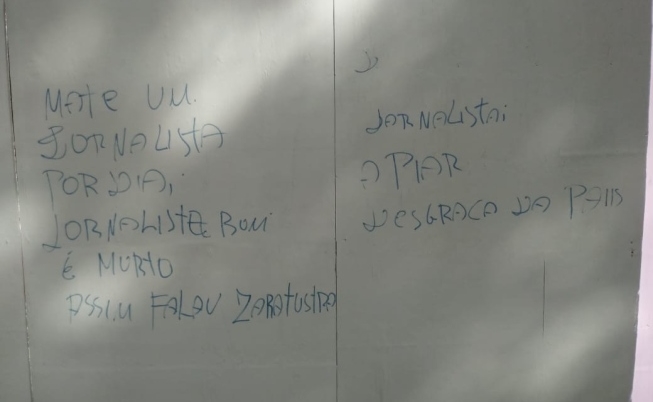 MATE UM.
JORNALISTA
POR DIA,
JORNALISTE BOM
É MURTO
ASSIM FALAV ZARATUSTRA
JORNALISTAi
A PIAR
DESGRACA DA PAIIS